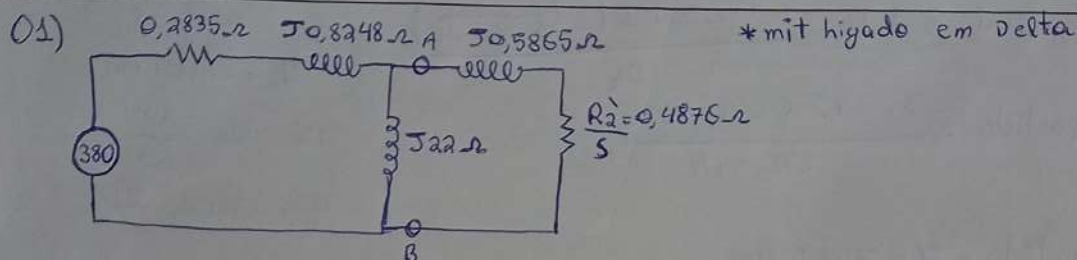 01) 0,2835Ω J0,8248Ω A J0,5865Ω *mit higado em Delta
380
J22Ω
R2'=0,4876Ω
S
B